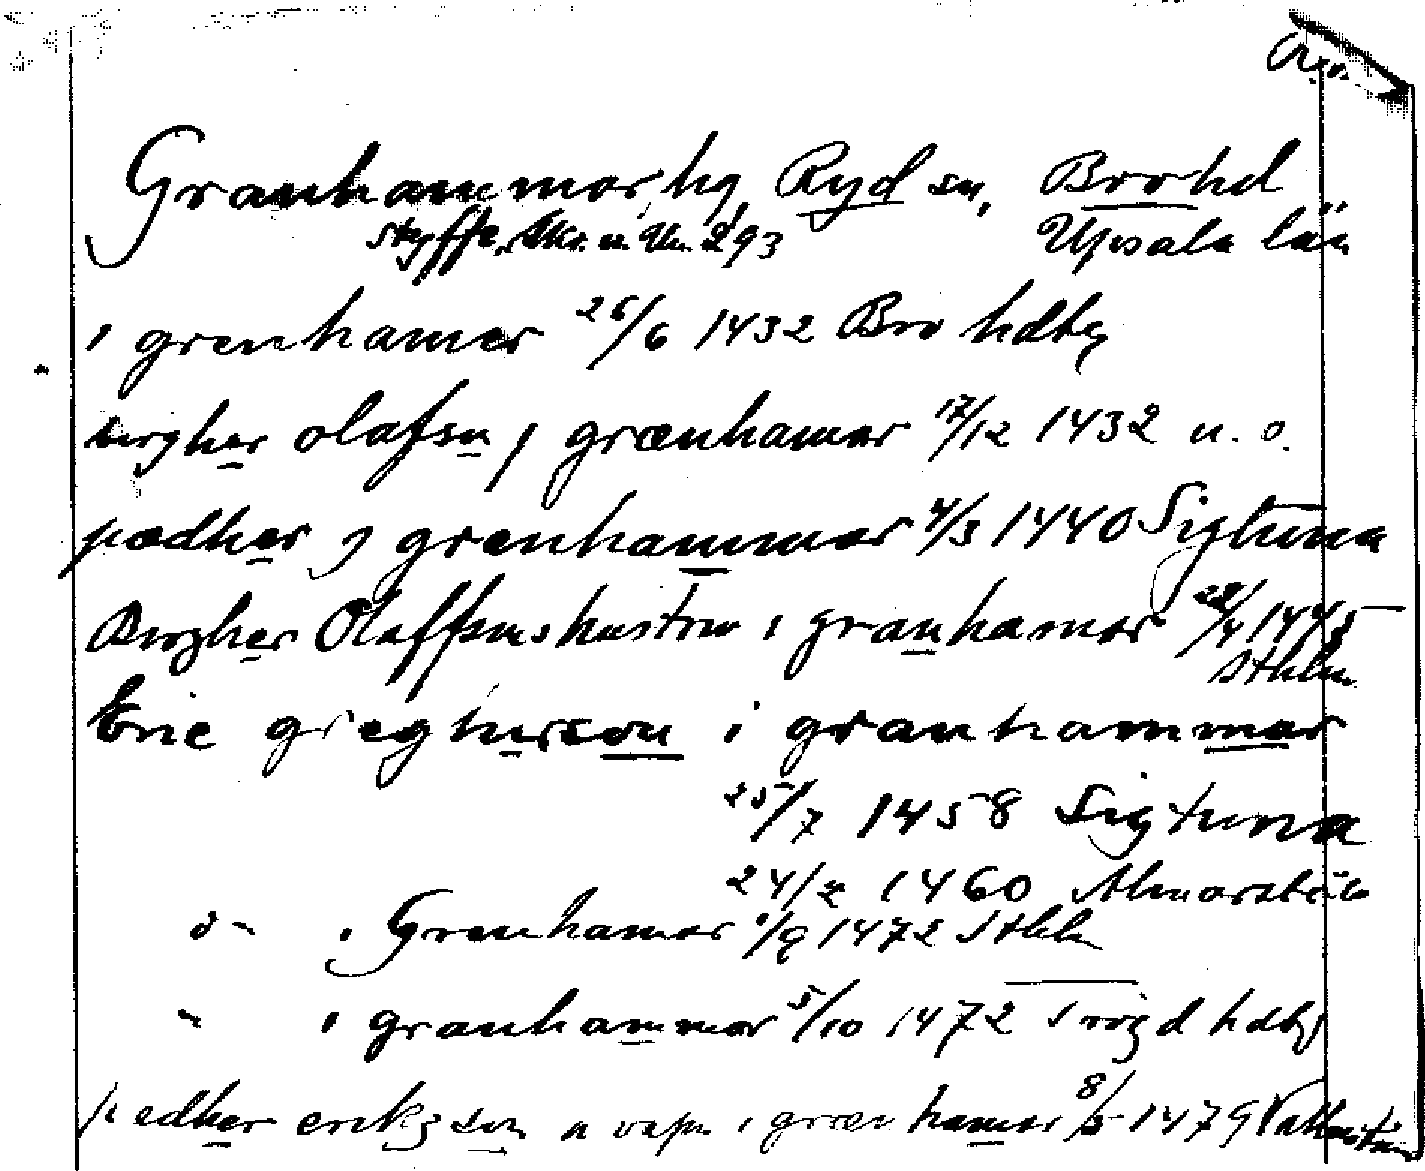 Granhammar, hg, Ryd sn, Brohd
Styffe, Skr. u. Un. 293 Upsala län
i grenhamer 26/6 1432 Bro hdtg
birgher olafsn j grænhamar 17/12 1432 u. o.
pædher j grænhammar 4/3 1440 Sigtuna
Birgher Olaffsens hustrw i granhamar 28/4 1445
Sthlm
Eric greghersson i granhammar
25/7 1458 Sigtuna
24/2 1460 Almarstäk
d- i Grenhamar 1/9 1472 Sthlm
" i granhammar 5/10 1472 Trögd hdtg
pedher erikzson a vapn i græn hamar 8/5 1479